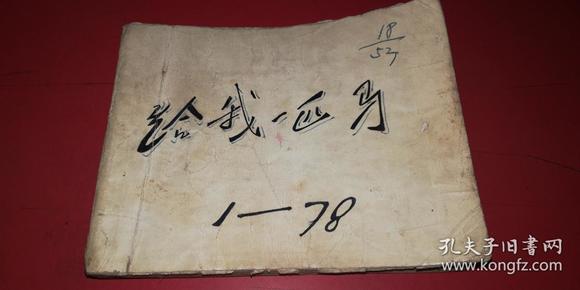 18/52
给我一匹马
1—78
孔夫子旧书网
www.kongfz.com